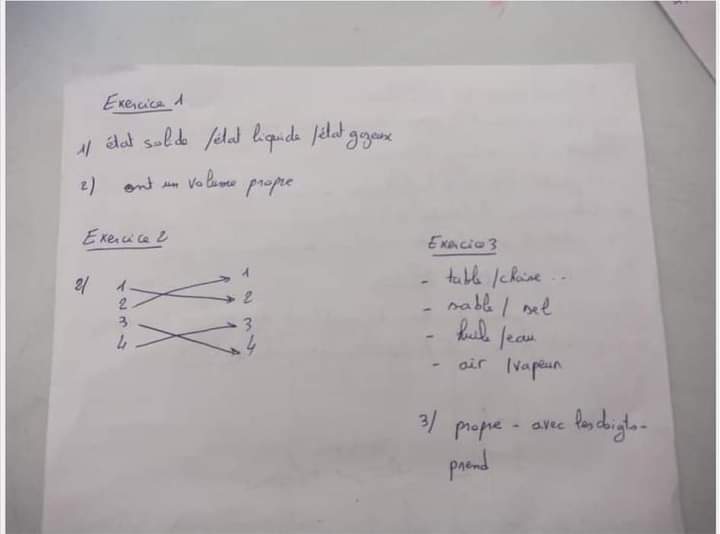 Exercice 1
1/ état solide /état liquide /état gazeux
2) ont un volume propre
Exercice 2
2/ 1 1
2 2
3 3
4 4
Exercice 3
- table /chaise ..
- sable / sel
- huile /eau
- air /vapeur
3/ propre - avec les doigts -
prend